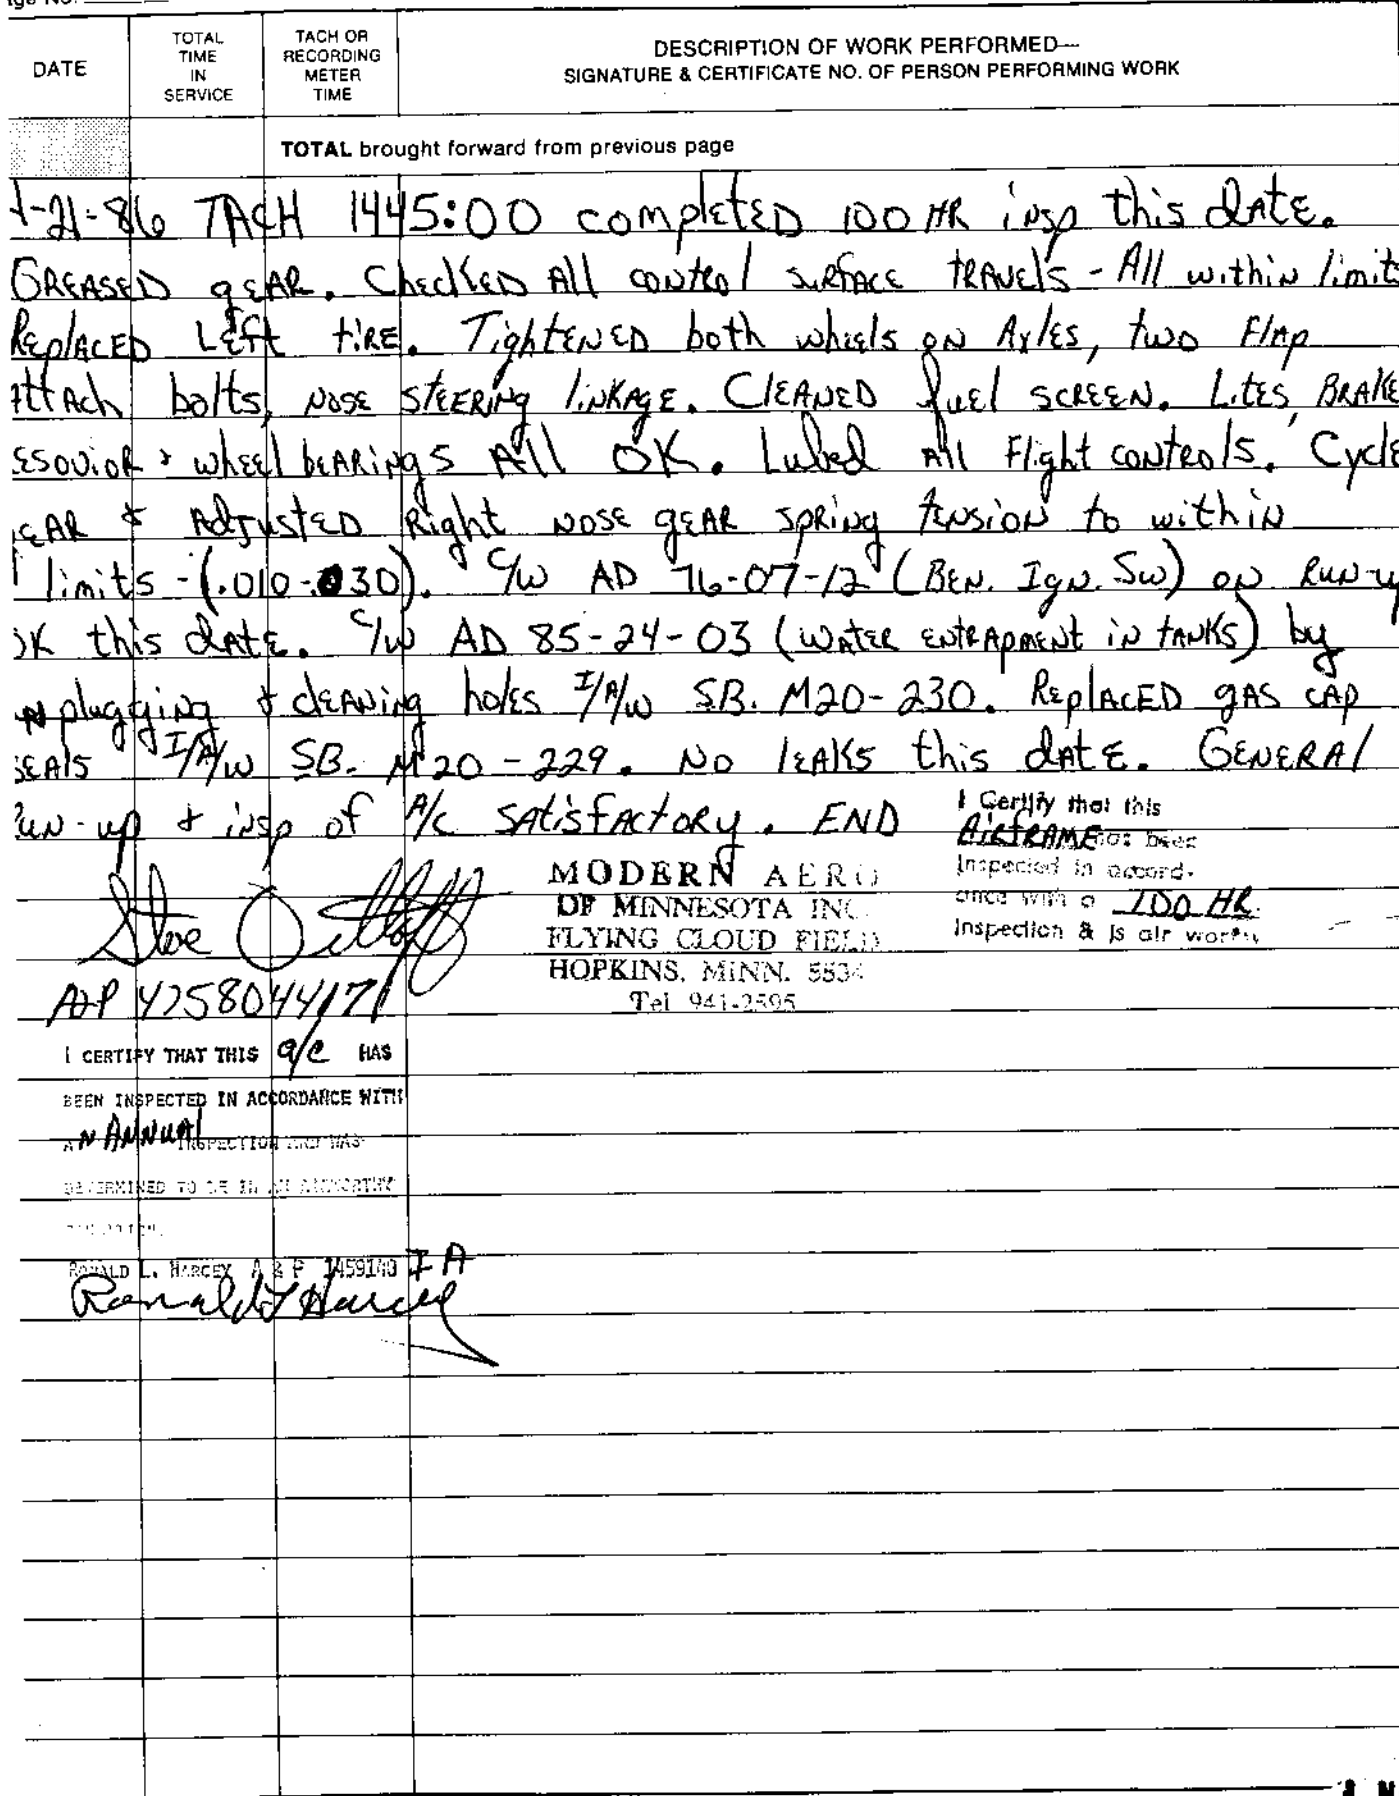 DATE
TOTAL TIME IN SERVICE
TACH OR RECORDING METER TIME
DESCRIPTION OF WORK PERFORMED—
SIGNATURE & CERTIFICATE NO. OF PERSON PERFORMING WORK
TOTAL brought forward from previous page
-21-86 TACH 1445:00 completed 100 HR insp this date.
Greased gear. Checked All control surface travels - All within limit
Replaced Left tire. Tightened both wheels on Axles, two Flap
attach bolts, nose steering linkage. Cleaned fuel screen. Lites, Brake
esovior & wheel bearings All OK. Lubed All Flight controls. Cycle
ear & Adjusted Right nose gear spring tension to within
limits - (.010-.030). C/W AD 76-07-12 (Ben. Ign. Sw) on Run-u
OK this date. C/W AD 85-24-03 (water entrapment in tanks) by
unplugging & cleaning holes I/A/W SB. M20-230. Replaced gas cap
seals I/A/W SB. M20-229. No leaks this date. General
Run-up & insp of A/C satisfactory. END
I Certify that this
AIRFRAME has been
Inspected in accord-
ance with a 100 HR.
Inspection & is air worthy
MODERN AERO
OF MINNESOTA INC.
FLYING CLOUD FIELD
HOPKINS, MINN. 5534
Tel 941-2595
Steve
A&P 475804417
I CERTIFY THAT THIS a/c HAS
BEEN INSPECTED IN ACCORDANCE WITH
AN ANNUAL INSPECTION AND WAS
DETERMINED TO BE IN AN AIRWORTHY
CONDITION.
RONALD L. HARCEY A & P 1459140 IA
Ronald L Harcey